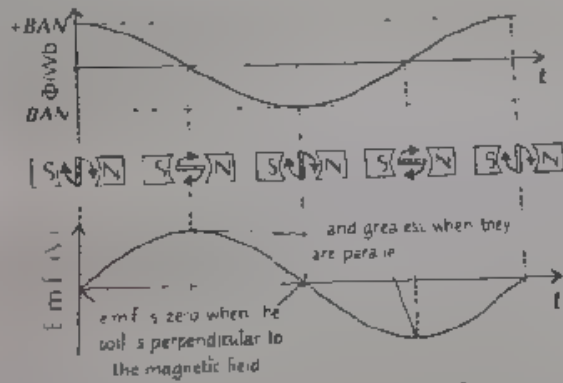 +BAN
Φ/Wb
t
BAN
S N S N S N S N S N
and greatest when they
are paralle
e m f (V)
t
e m f s zero when he
coil s perpendicular to
the magnetic field